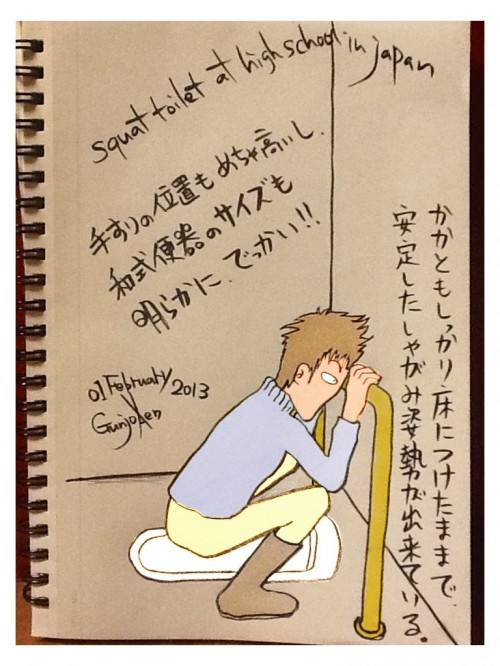 squat toilet at high school in japan
手すりの位置もめちゃ高いし、
和式便器のサイズも
明らかに、でっかい!!
かかともしっかり床につけたままで、
安定したしゃがみ姿勢が出来ている。
01 February 2013
Gunjoпen